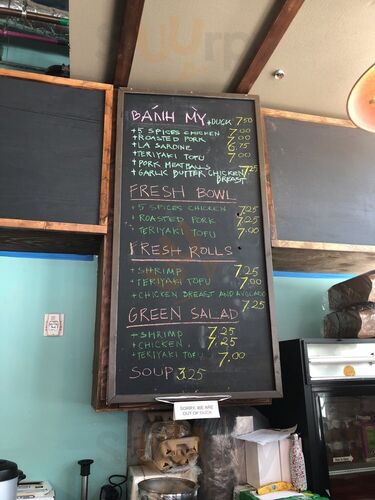 BÁNH MỲ
+DUCK 7.50
+5 SPICES CHICKEN 7.00
+ROASTED PORK 7.00
+LA SARDINE 6.75
+TERIYAKI TOFU 7.00
+PORK MEATBALLS
+GARLIC BUTTER CHICKEN BREAST 7.25
FRESH BOWL
+5 SPICES CHICKEN 7.25
+ROASTED PORK 7.25
TERIYAKI TOFU 7.00
FRESH ROLLS
+SHRIMP 7.25
+TERIYAKI TOFU 7.00
+CHICKEN BREAST AND AVOCADO 7.25
GREEN SALAD
+SHRIMP 7.25
+CHICKEN 7.25
+TERIYAKI TOFU 7.00
SOUP 3.25
SORRY, WE ARE
OUT OF DUCK